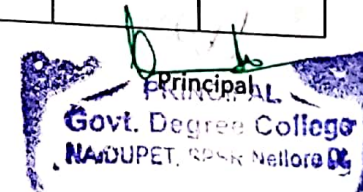 Principal
PRINCIPAL
Govt. Degree College
NAIDUPET, SPSR Nellore Dt